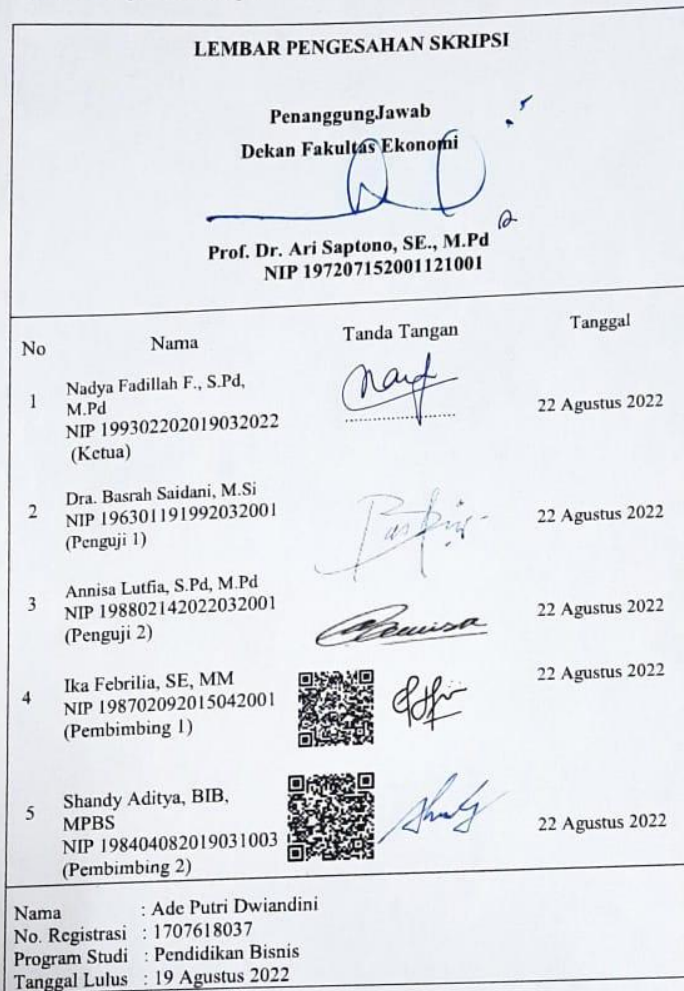 LEMBAR PENGESAHAN SKRIPSI
PenanggungJawab
Dekan Fakultas Ekonomi
Prof. Dr. Ari Saptono, SE., M.Pd
NIP 197207152001121001
No Nama Tanda Tangan Tanggal
1 Nadya Fadillah F., S.Pd,
M.Pd
NIP 199302202019032022
(Ketua)
22 Agustus 2022
2 Dra. Basrah Saidani, M.Si
NIP 196301191992032001
(Penguji 1)
22 Agustus 2022
3 Annisa Lutfia, S.Pd, M.Pd
NIP 198802142022032001
(Penguji 2)
22 Agustus 2022
4 Ika Febrilia, SE, MM
NIP 198702092015042001
(Pembimbing 1)
22 Agustus 2022
5 Shandy Aditya, BIB,
MPBS
NIP 198404082019031003
(Pembimbing 2)
22 Agustus 2022
Nama : Ade Putri Dwiandini
No. Registrasi : 1707618037
Program Studi : Pendidikan Bisnis
Tanggal Lulus : 19 Agustus 2022